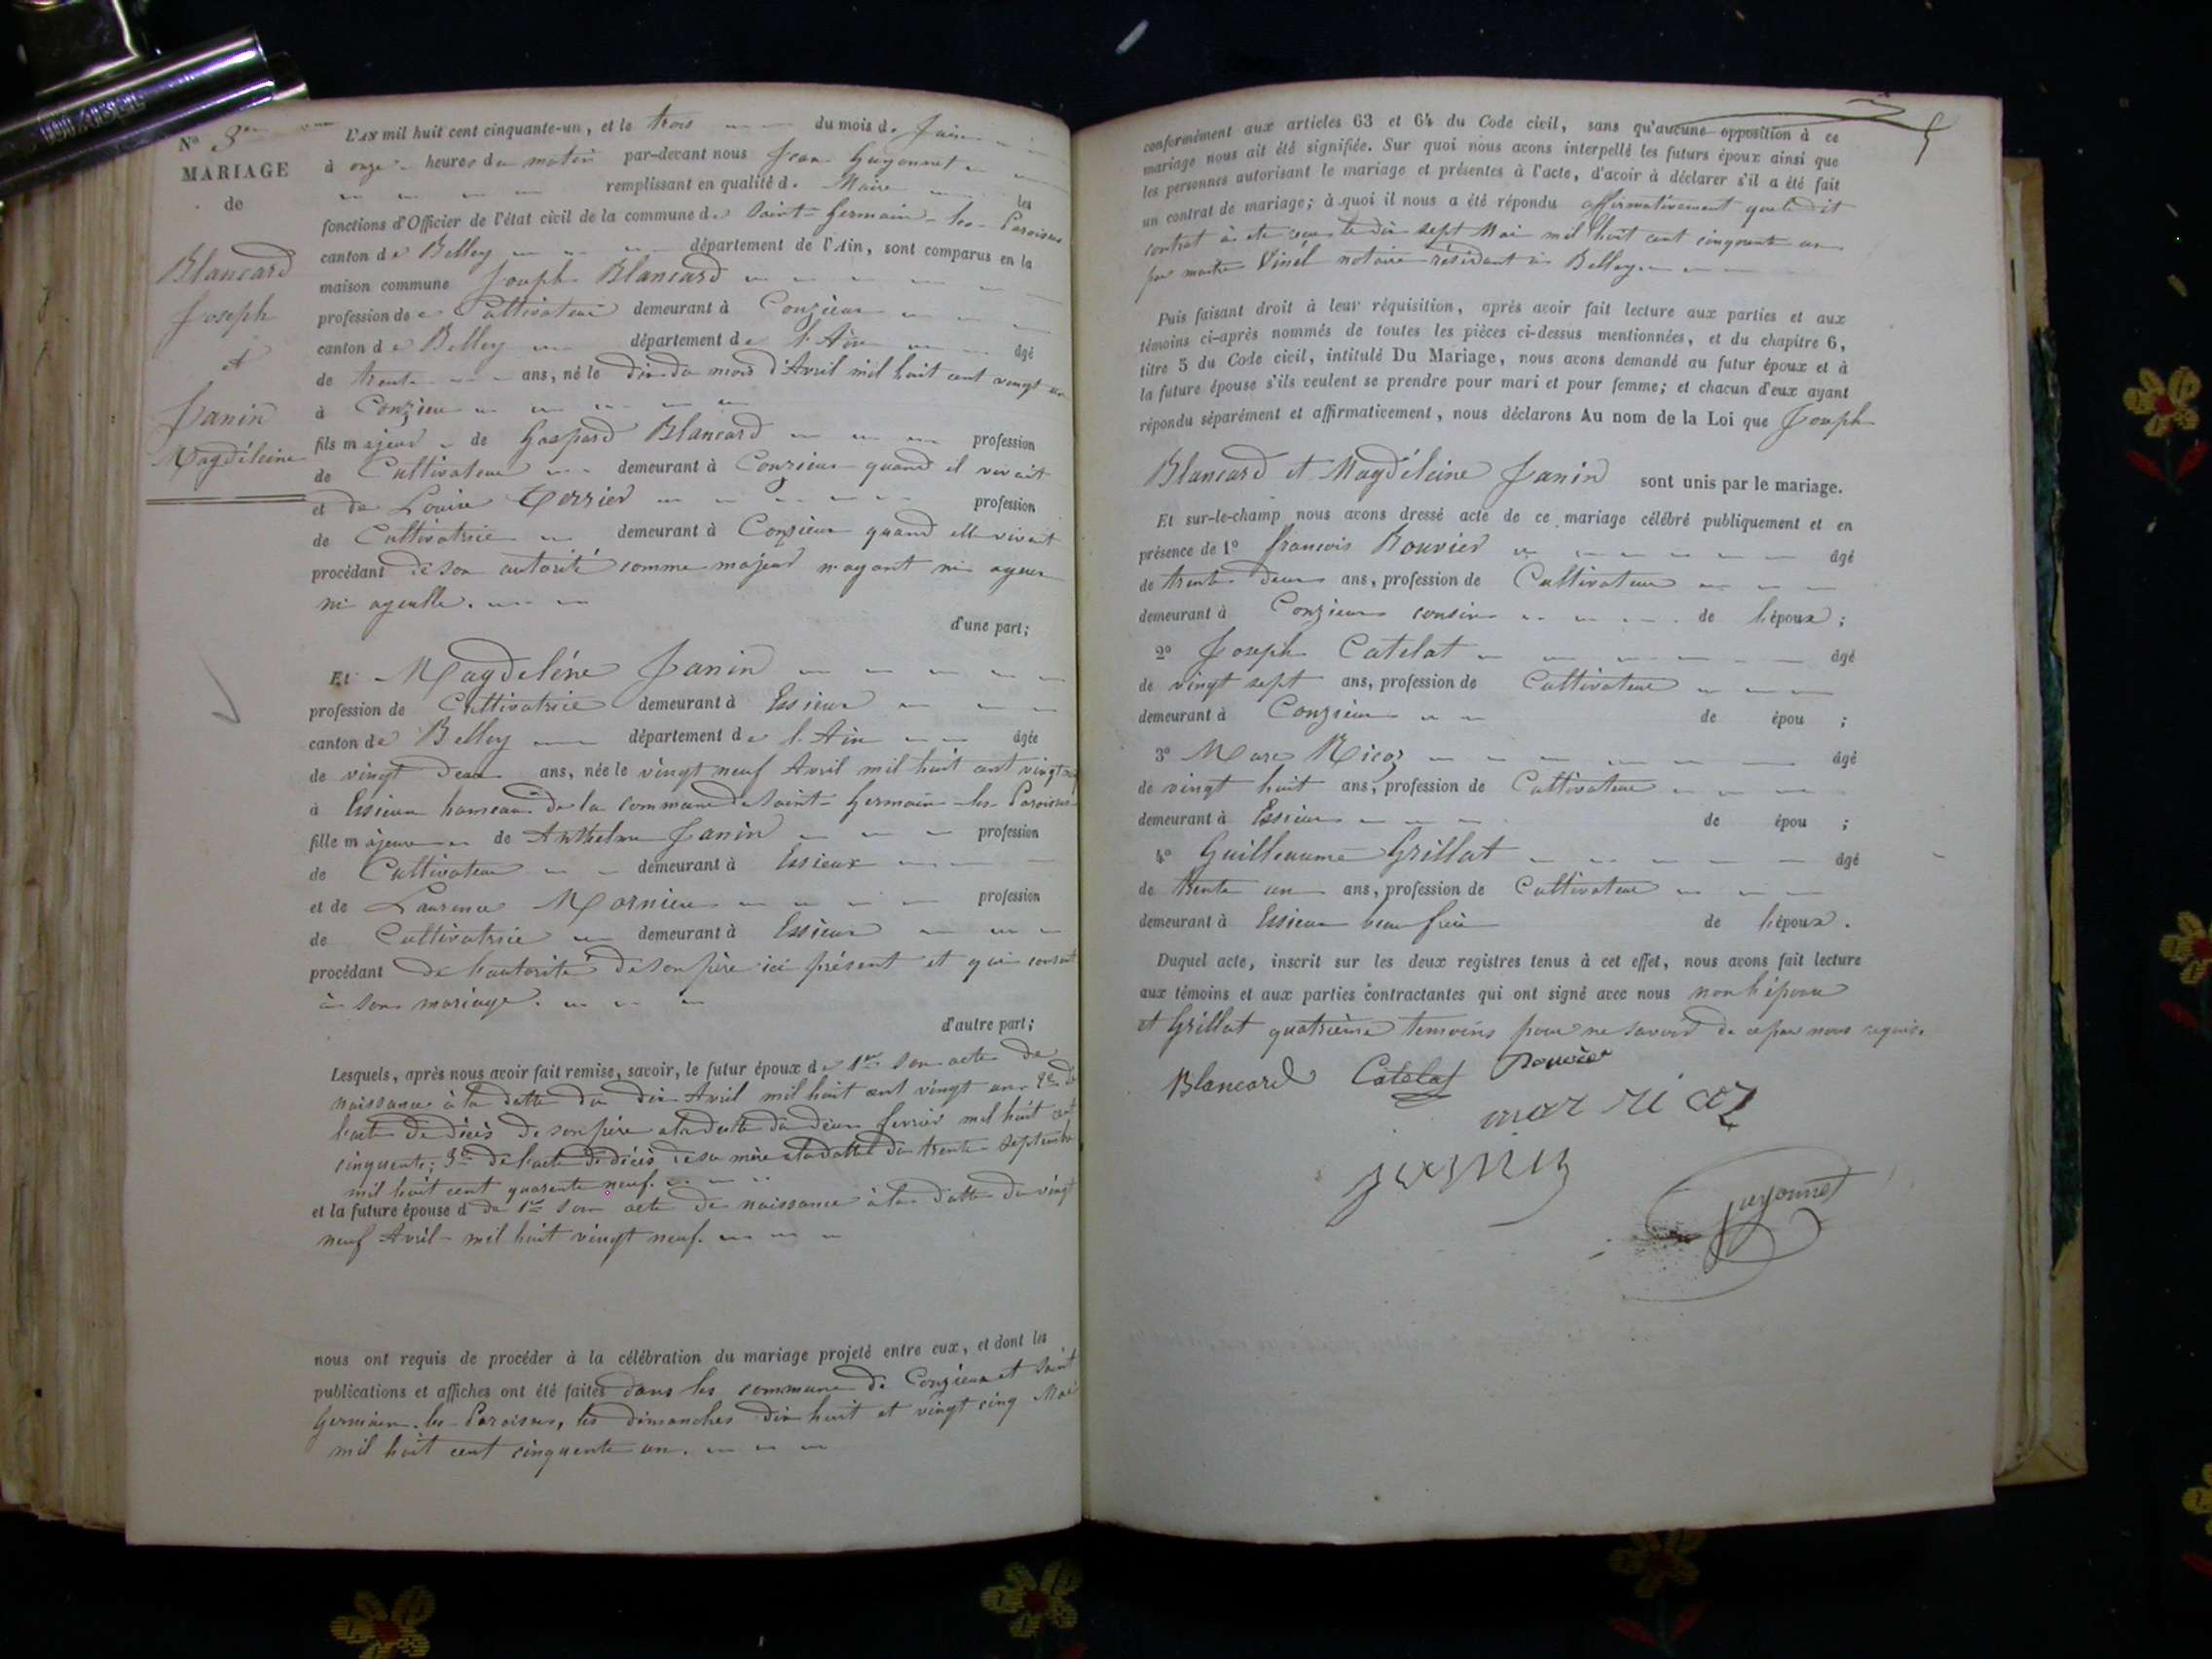 N° 3
MARIAGE
de
Blancard
Joseph
et
Janin
Magdéleine
L'AN mil huit cent cinquante-un, et le trois du mois de Juin
à onze heures du matin par-devant nous Jean Guyonnet
remplissant en qualité de Maire les
fonctions d'Officier de l'état civil de la commune de Saint-Germain-les-Paroisses
canton de Belley département de l'Ain, sont comparus en la
maison commune Joseph Blancard
profession de Cultivateur demeurant à Conzieu
canton de Belley département de l'Ain âgé
de trente ans, né le dix du mois d'Avril mil huit cent vingt un
à Conzieu
fils majeur de Gaspard Blancard profession
de Cultivateur demeurant à Conzieu quand il vivait
et de Louise profession
de Cultivatrice demeurant à Conzieu quand elle vivait
procédant de son autorité comme majeur n'ayant ni ayeux
ni ayeulle.
d'une part;
Et Magdeléne Janin
profession de Cultivatrice demeurant à Essieux
canton de Belley département de l'Ain âgée
de vingt deux ans, née le vingt neuf Avril mil huit cent vingt neuf
à Essieux hameau de la commune de Saint-Germain-les-Paroisses
fille majeure de Anthelme Janin profession
de Cultivateur demeurant à Essieux
et de Laurence Mornieu profession
de Cultivatrice demeurant à Essieux
procédant de l'autorité de son père ici présent et qui consent
à son mariage.
d'autre part;
Lesquels, après nous avoir fait remise, savoir, le futur époux de 1er son acte de
naissance à la datte du dix Avril mil huit cent vingt un 2e de
l'acte de décès de son père à la datte du deux fevrier mil huit cent
cinquente; 3e de l'acte de décès de sa mère à la datte du trente septembre
mil huit cent quarente neuf.
et la future épouse d de 1er son acte de naissance à la datte du vingt
neuf Avril mil huit vingt neuf.
nous ont requis de procéder à la célébration du mariage projeté entre eux, et dont les
publications et affiches ont été faites dans les commune de Conzieu et Saint
Germain-les-Paroisses, les dimanches dix huit et vingt cinq Mai
mil huit cent cinquente un.
conformément aux articles 63 et 64 du Code civil, sans qu'aucune opposition à ce
mariage nous ait été signifiée. Sur quoi nous avons interpellé les futurs époux ainsi que
les personnes autorisant le mariage et présentes à l'acte, d'avoir à déclarer s'il a été fait
un contrat de mariage; à quoi il nous a été répondu affirmativement que le dit
contrat à ete recu le dix sept Mai mil huit cent cinquente un
par maitre Vinel notaire résidant à Belley.
Puis faisant droit à leur réquisition, après avoir fait lecture aux parties et aux
témoins ci-après nommés de toutes les pièces ci-dessus mentionnées, et du chapitre 6,
titre 5 du Code civil, intitulé Du Mariage, nous avons demandé au futur époux et à
la future épouse s'ils veulent se prendre pour mari et pour femme; et chacun d'eux ayant
répondu séparément et affirmativement, nous déclarons Au nom de la Loi que Joseph
Blancard et Magdéleine Janin sont unis par le mariage.
Et sur-le-champ nous avons dressé acte de ce mariage célébré publiquement et en
présence de 1° francois Bouvier âgé
de trente deux ans, profession de Cultivateur
demeurant à Conzieu cousin de l'époux;
2° Joseph Catelat âgé
de vingt sept ans, profession de Cultivateur
demeurant à Conzieu de épou ;
3° Marc Ricoz âgé
de vingt huit ans, profession de Cultivateur
demeurant à Essieux de épou ;
4° Guilleaume Grillat âgé
de trente un ans, profession de Cultivateur
demeurant à Essieux beau frère de l'époux.
Duquel acte, inscrit sur les deux registres tenus à cet effet, nous avons fait lecture
aux témoins et aux parties contractantes qui ont signé avec nous non l'épouse
et Grillat quatrième temoins pour ne savoir de ce par nous requis.
Blancard Catelat Bouvier
mar ricoz
janin
guyonnet